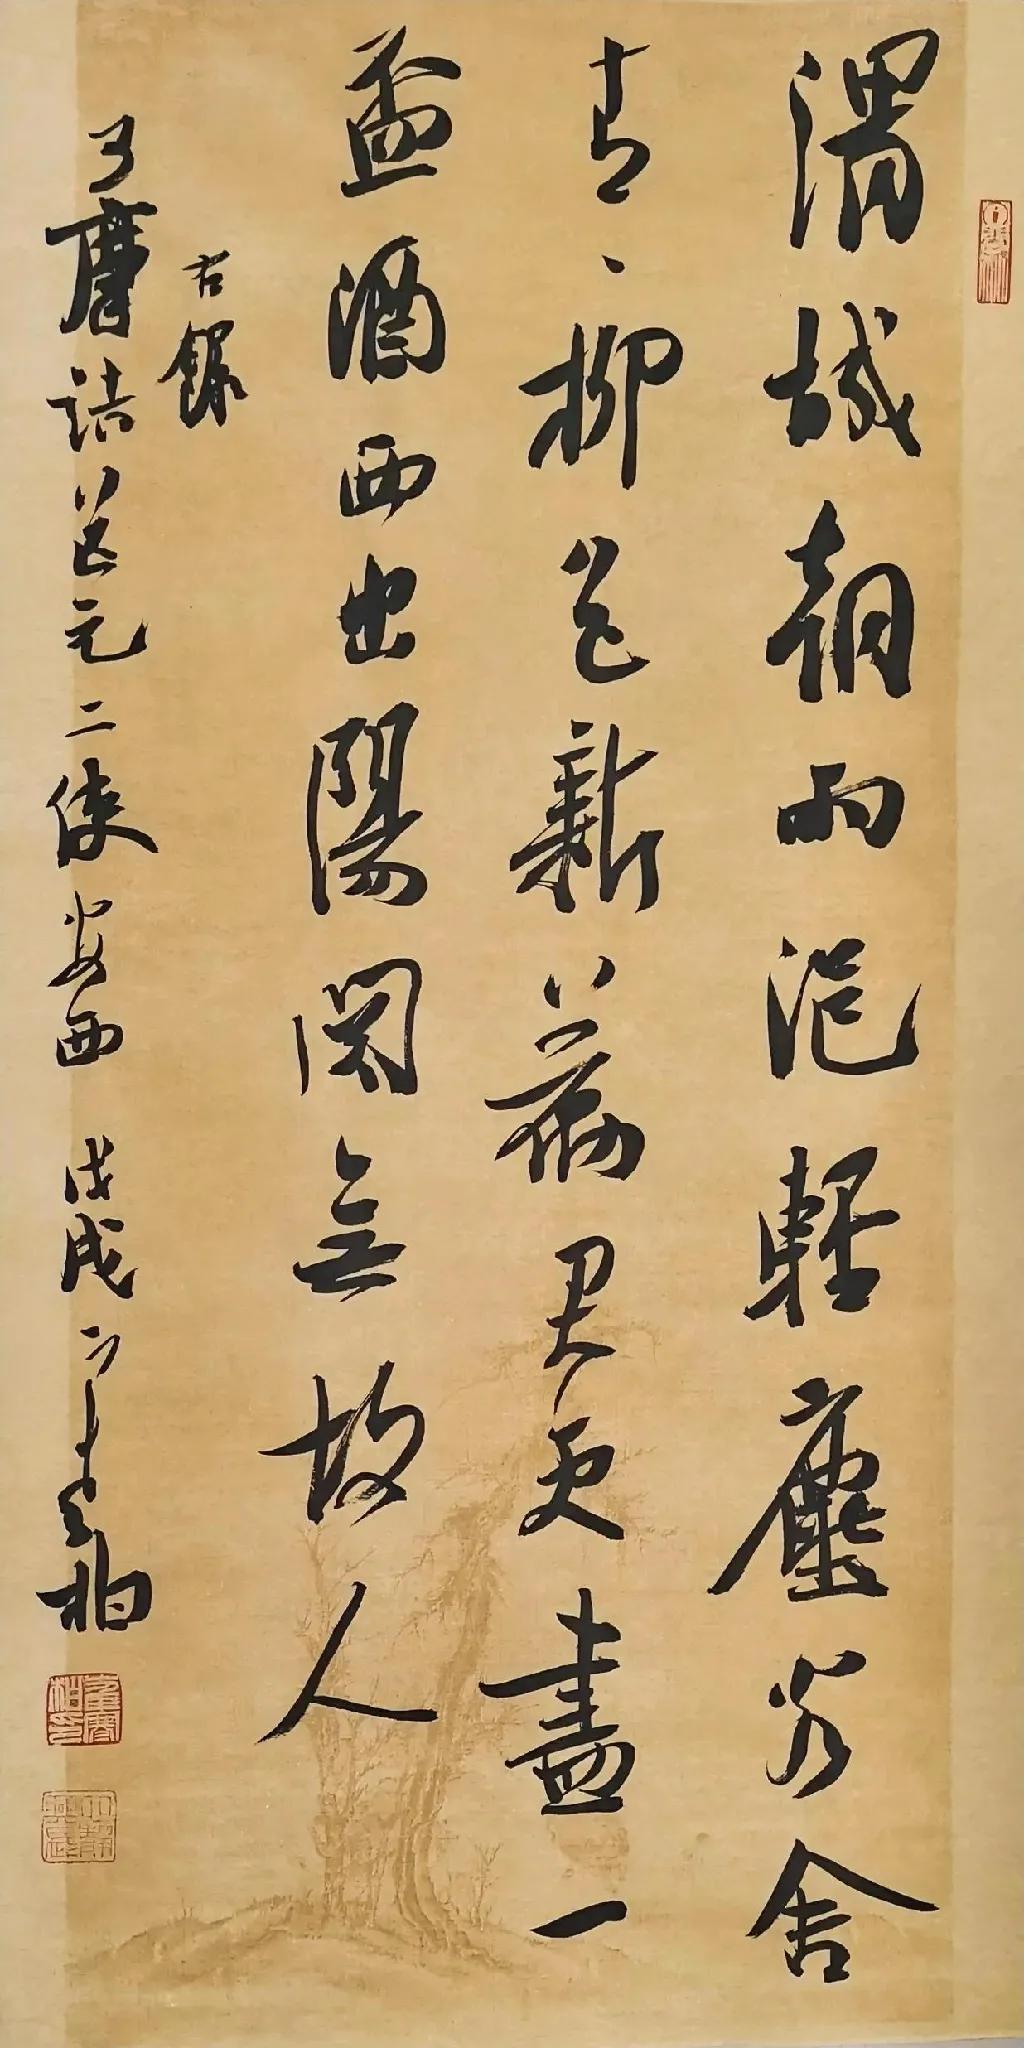 渭城朝雨浥輕塵客舍
青〻柳色新勸君更盡一
盃酒西出陽關無故人
右錄
王摩詰送元二使安西 戊戌 柏